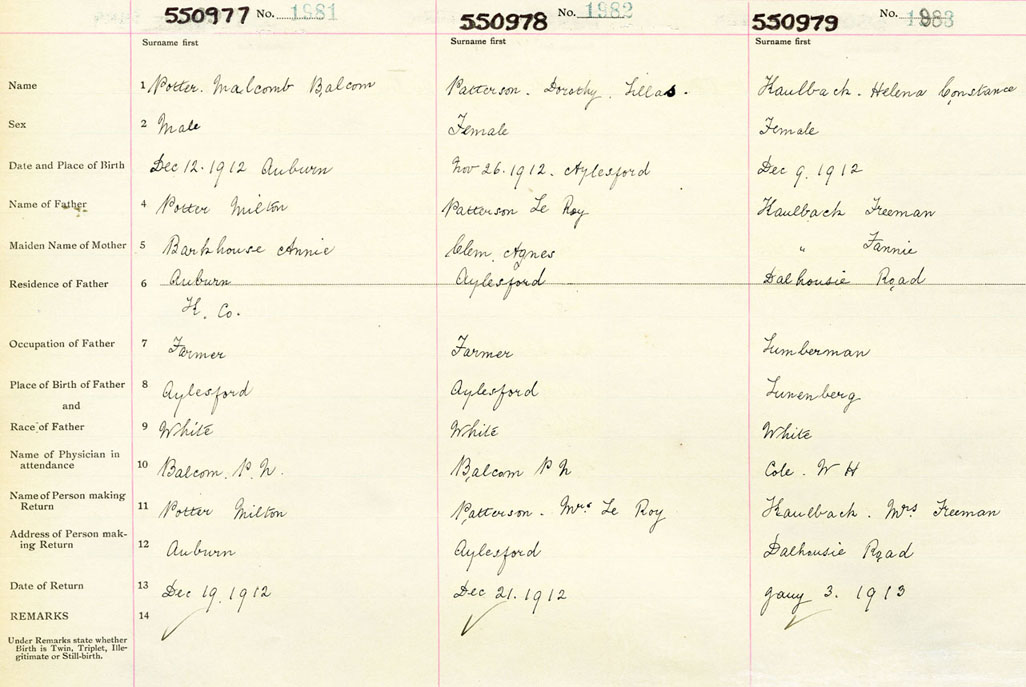 550977 No. 1881 550978 No. 1982 550979 No. 1983
Surname first Surname first Surname first
Name 1 Potter. Malcomb Balcom Patterson. Dorothy. Lillas. Kaulback. Helena Constance
Sex 2 Male Female Female
Date and Place of Birth Dec 12. 1912 Auburn Nov 26. 1912. Aylesford Dec 9. 1912
Name of Father 4 Potter Milton Patterson Le Roy Kaulback Freeman
Maiden Name of Mother 5 Barkhouse Annie Clem, Agnes " Fannie
Residence of Father 6 Auburn Aylesford Dalhousie Road
K. Co.
Occupation of Father 7 Farmer Farmer Lumberman
Place of Birth of Father 8 Aylesford Aylesford Lunenberg
and
Race of Father 9 White White White
Name of Physician in
attendance 10 Balcom. P. N. Balcom P N Cole. W H
Name of Person making
Return 11 Potter Milton Patterson. Mrs Le Roy Kaulback. Mrs Freeman
Address of Person mak-
ing Return 12 Auburn Aylesford Dalhousie Road
Date of Return 13 Dec 19. 1912 Dec 21. 1912 Jany 3. 1913
REMARKS 14
Under Remarks state whether
Birth is Twin, Triplet, Ille-
gitimate or Still-birth.